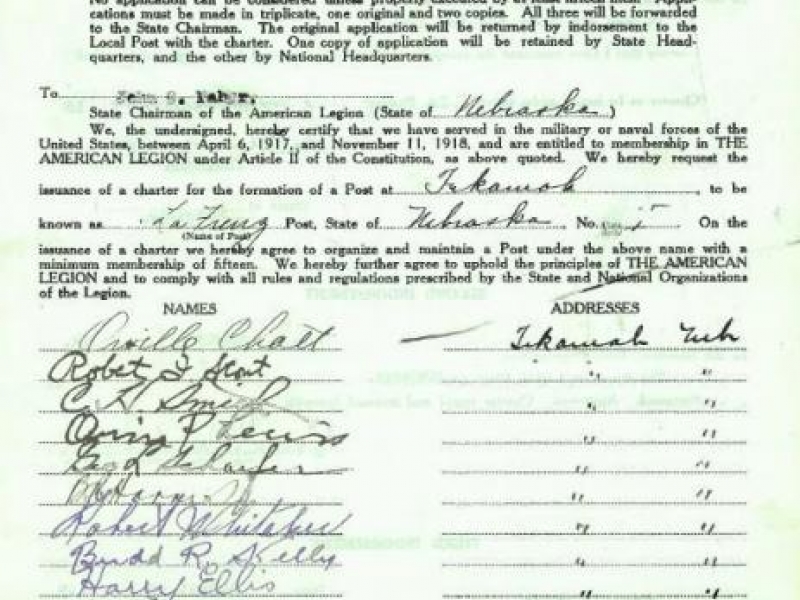 No application can be considered unless properly executed by at least fifteen men. Appli-
cations must be made in triplicate, one original and two copies. All three will be forwarded
to the State Chairman. The original application will be returned by indorsement to the
Local Post with the charter. One copy of application will be retained by State Head-
quarters, and the other by National Headquarters.
To John G. Maher,
State Chairman of the American Legion (State of Nebraska)
We, the undersigned, hereby certify that we have served in the military or naval forces of the
United States, between April 6, 1917, and November 11, 1918, and are entitled to membership in THE
AMERICAN LEGION under Article II of the Constitution, as above quoted. We hereby request the
issuance of a charter for the formation of a Post at Tekamah, to be
known as Post, State of Nebraska, No. On the
(Name of Post)
issuance of a charter we hereby agree to organize and maintain a Post under the above name with a
minimum membership of fifteen. We hereby further agree to uphold the principles of THE AMERICAN
LEGION and to comply with all rules and regulations prescribed by the State and National Organizations
of the Legion.
NAMES ADDRESSES
Orville Chatt Tekamah Neb
Robet Stout " "
C. A. Smith " "
Orvin P Lewis " "
Geo L " "
" "
Robert Whitaker " "
Budd R. Skelly " "
Harry Ellis " "